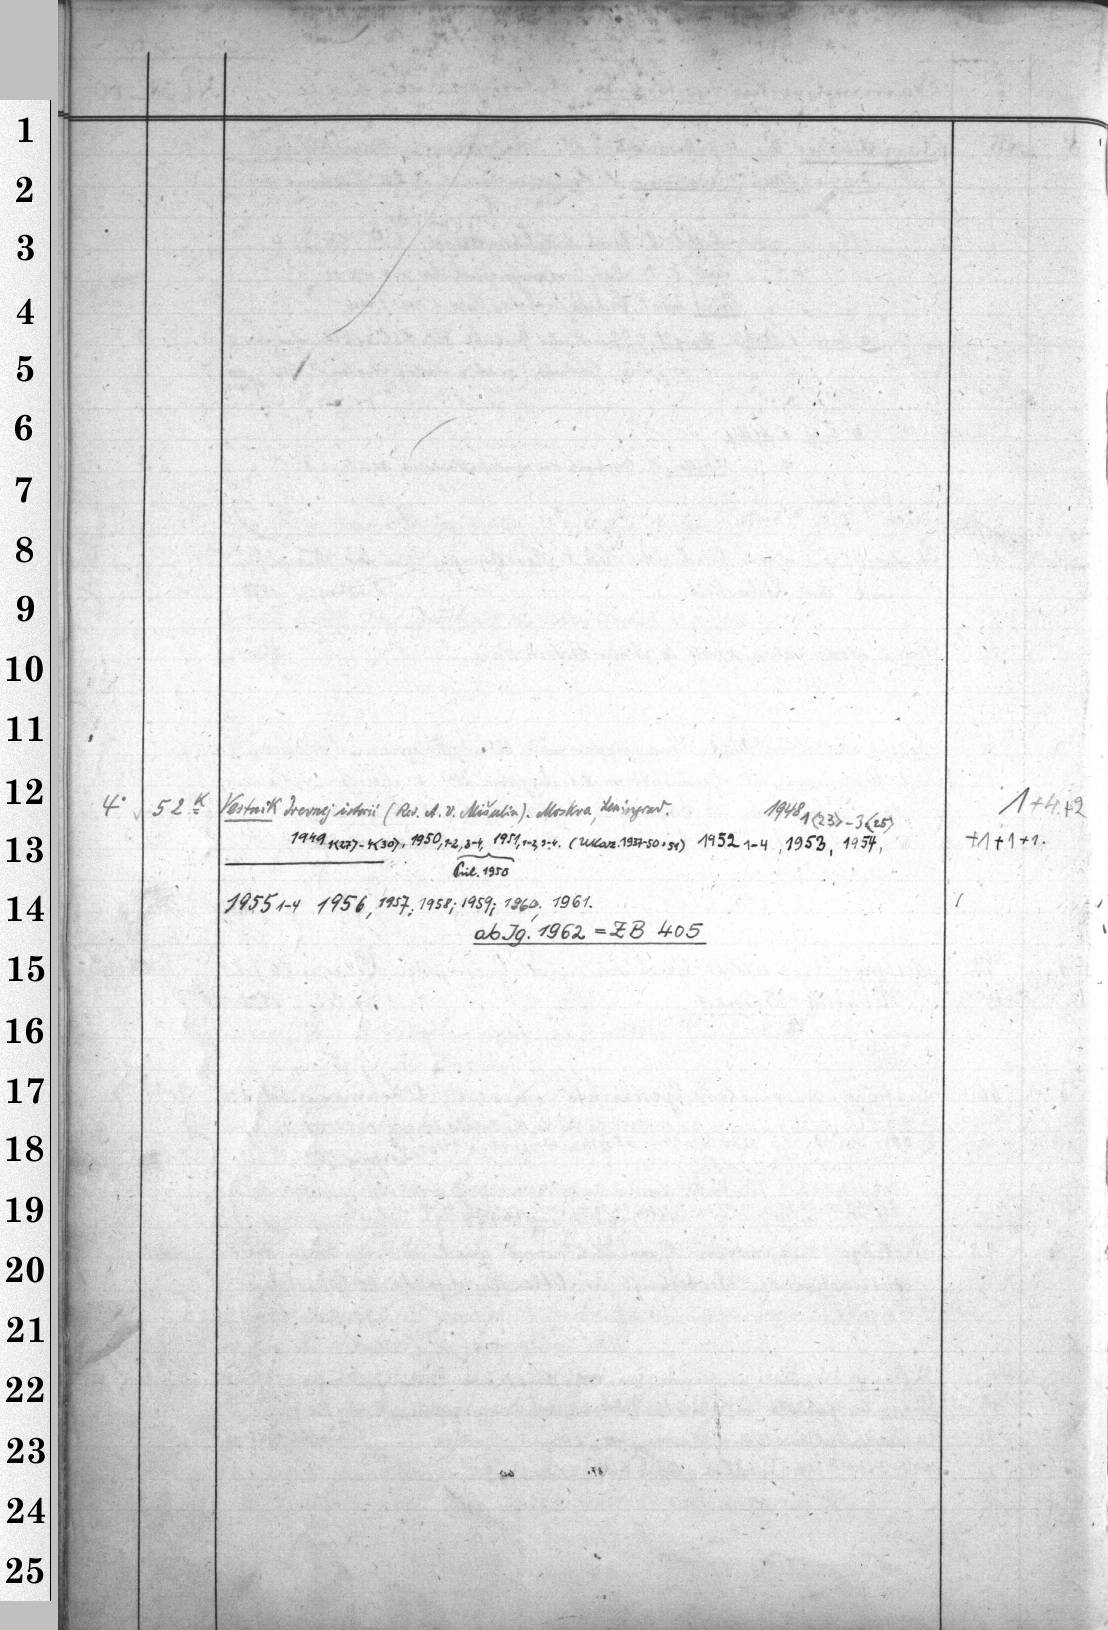 1
2
3
4
5
6
7
8
9
10
11
12
4° 52 K Vestnik drevnej istorii (Red. A. V. Mišulin). Moskva, Leningrad. 1948 1(23)-3(25) 1+4+2
13
1949 1(27)-4(30), 1950, 1-2, 3-4, 1951, 1-2, 3-4. (Ukaz. 1937-50+51) 1952 1-4, 1953, 1954, +1+1+1.
Pril. 1950
14
1955 1-4 1956, 1957; 1958; 1959; 1960, 1961.
ab Jg. 1962 = ZB 405
15
16
17
18
19
20
21
22
23
24
25